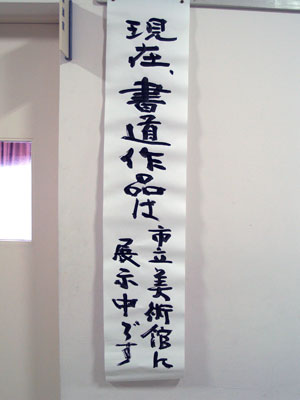 現在、書道作品は
市立美術館に
展示中です